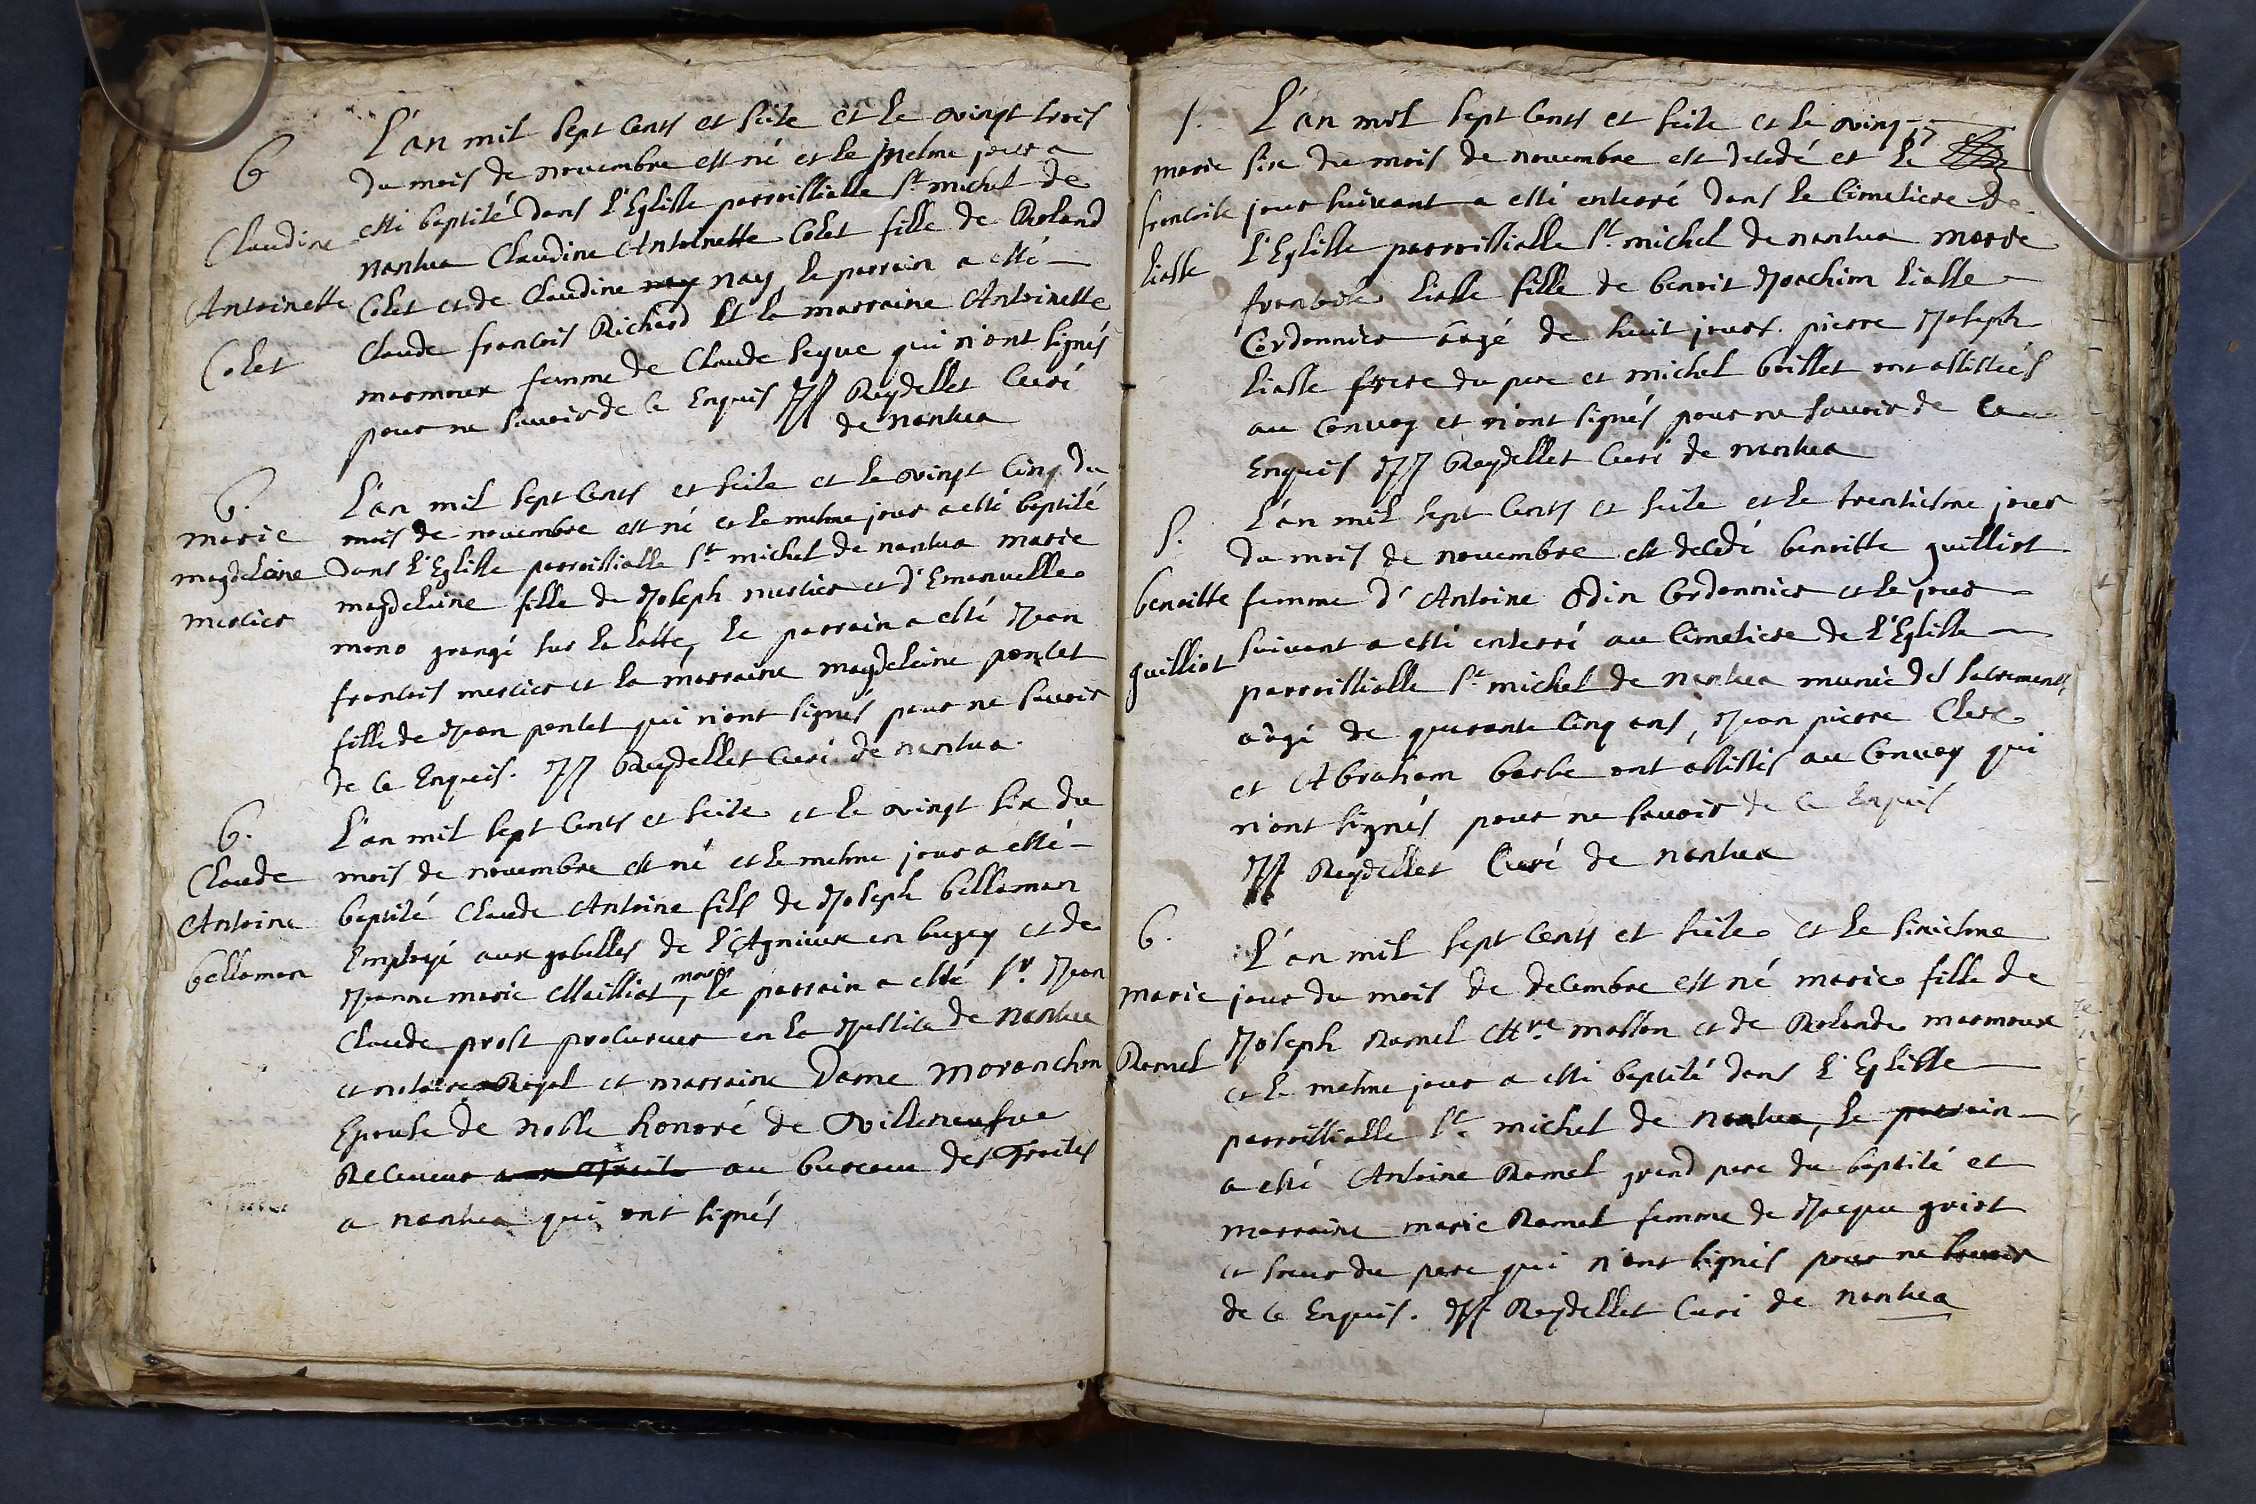 B
Claudine
Antoinette
Colet
L'an mil sept cents et seize et le vingt trois
du mois de novembre est né et le mesme jour a
esté baptisé dans l'Eglisse parroissialle St michel de
nantua Claudine Antoinette Colet fille de Roland
Colet et de Claudine nay nay le parrain a esté
Claude francois Richard Et la marraine Antoinette
marmoux femme de Claude seque qui n'ont signés
pour ne savoir de ce Enquis JJ Reydellet Curé
de nantua
B.
marie
magdeleine
mercier
L'an mil sept cents et seize et le vingt cinq du
mois de novembre est né et le mesme jour a esté baptisé
dans l'Eglisse parroissialle St michel de nantua marie
magdeleine fille de Joseph mercier et d'Emanuelle
mono grangé sur la latte, le parrain a esté Jean
francois mercier et la marraine magdeleine ponlet
fille de Jean ponlet qui n'ont signés pour ne savoir
de ce Enquis. JJ Reydellet Curé de nantua.
B.
Claude
Antoine
belleman
L'an mil sept cents et seize et le vingt six du
mois de novembre est né et le mesme jour a esté
baptisé Claude Antoine fils de Joseph belleman
Employé aux gabelles de l'Agnieux en bugey et de
Jeanne marie Mailliat, le parrain a esté Sr. Jean
Claude prost procureur en la Justice de nantua
et notaire Royal et marraine Dame moranchon
Epouse de noble honoré de Villeneufve
Receveur au bureau des Traites
a nantua qui ont signés
S.
marie
francoise
liasse
L'an mil sept cents et seize et le ving
six du mois de novembre est decedé et le
jour suivant a esté enterré dans le cimetiere de
l'Eglisse parroissialle St. michel de nantua marie
francoise liasse fille de benoit Joachim liasse
Cordonnier aagé de huit jours. pierre Joseph
liasse frere du pere et michel boillet ont assistées
au convoy et n'ont signés pour ne savoir de ce
Enquis JJ Reydellet Curé de nantua
S.
benoitte
guilliot
L'an mil sept cents et seize et le trentiesme jour
du mois de novembre est decedé benoitte guilliot
femme d'Antoine Odin Cordonnier et le jour
suivant a esté enterré au cimetiere de l'Eglisse
parroissialle St. michel de nantua munie des sacrements
aagé de quarante cinq ans, Jean pierre Clerc
et Abraham barbe ont assistés au convoy qui
n'ont signés pour ne savoir de ce Enquis
JJ Reydellet Curé de nantua
B.
marie
Ramel
L'an mil sept cents et seize et le sixiesme
jour du mois de decembre est né marie fille de
Joseph Ramel Mre masson et de Rolande marmoux
et le mesme jour a esté baptisé dans l'Eglisse
parroissialle St. michel de nantua, le parrain
a esté Antoine Ramel grand pere du baptisé et
marraine marie Ramel femme de Jacque guiot
et soeur du pere qui n'ont signés pour ne savoir
de ce Enquis. JJ Reydellet Curé de nantua